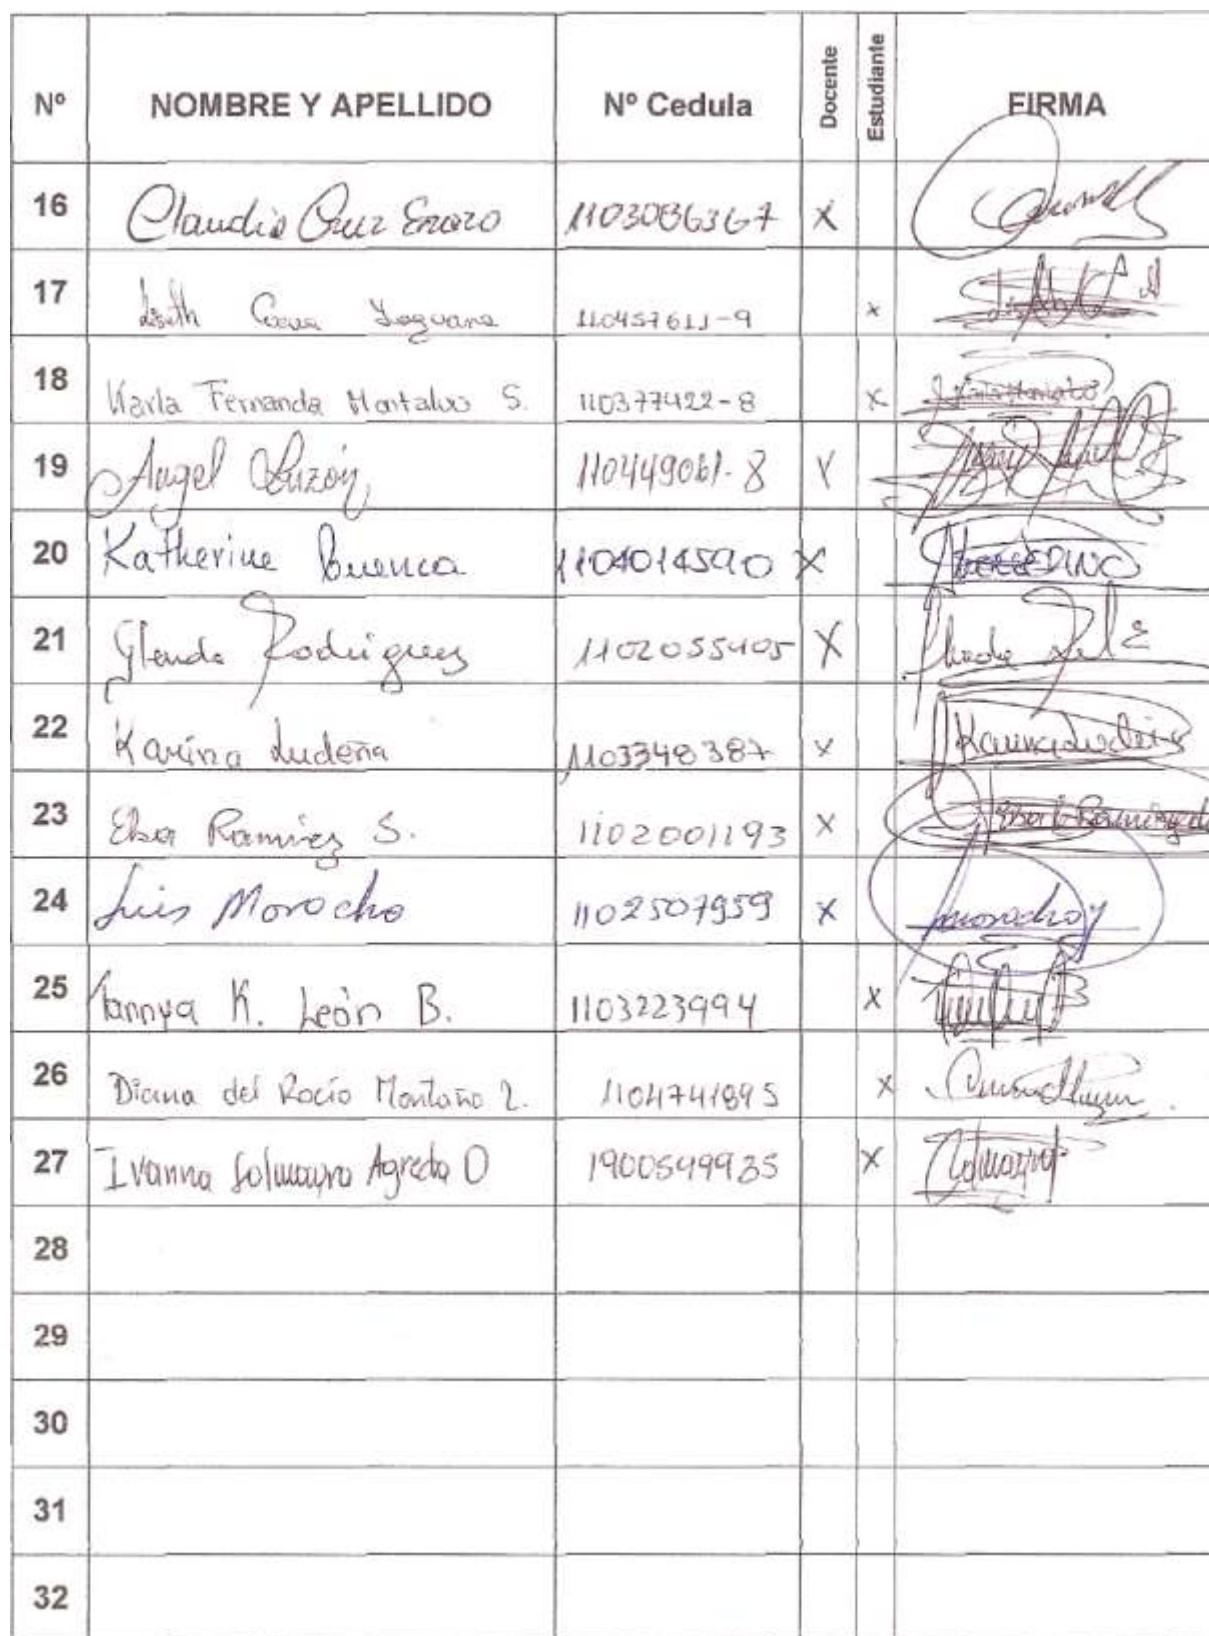 Nº NOMBRE Y APELLIDO Nº Cedula Docente Estudiante FIRMA
16 Claudia Cruz Erazo 1103086367 X
17 Liseth Yaguana 110457611-9 x
18 Karla Fernanda Montalvo S. 110377422-8 x
19 Angel Luzón 110449061-8 X
20 Katherine Cuenca 1104014590 X
21 Glenda Rodriguez 1102055405 X
22 Karina Ludeña 1103348387 x
23 Elsa Ramirez S. 1102001193 x
24 Luis Morocho 1102507959 x
25 Tannya K. León B. 1103223994 x
26 Diana del Rocío Montaño 1104741895 x
27 Ivanna Solmayra Agreda O 1900549935 x
28
29
30
31
32